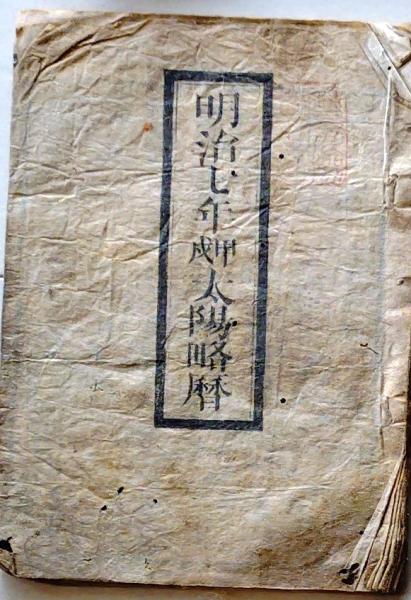 明治七年甲戌太陽略暦